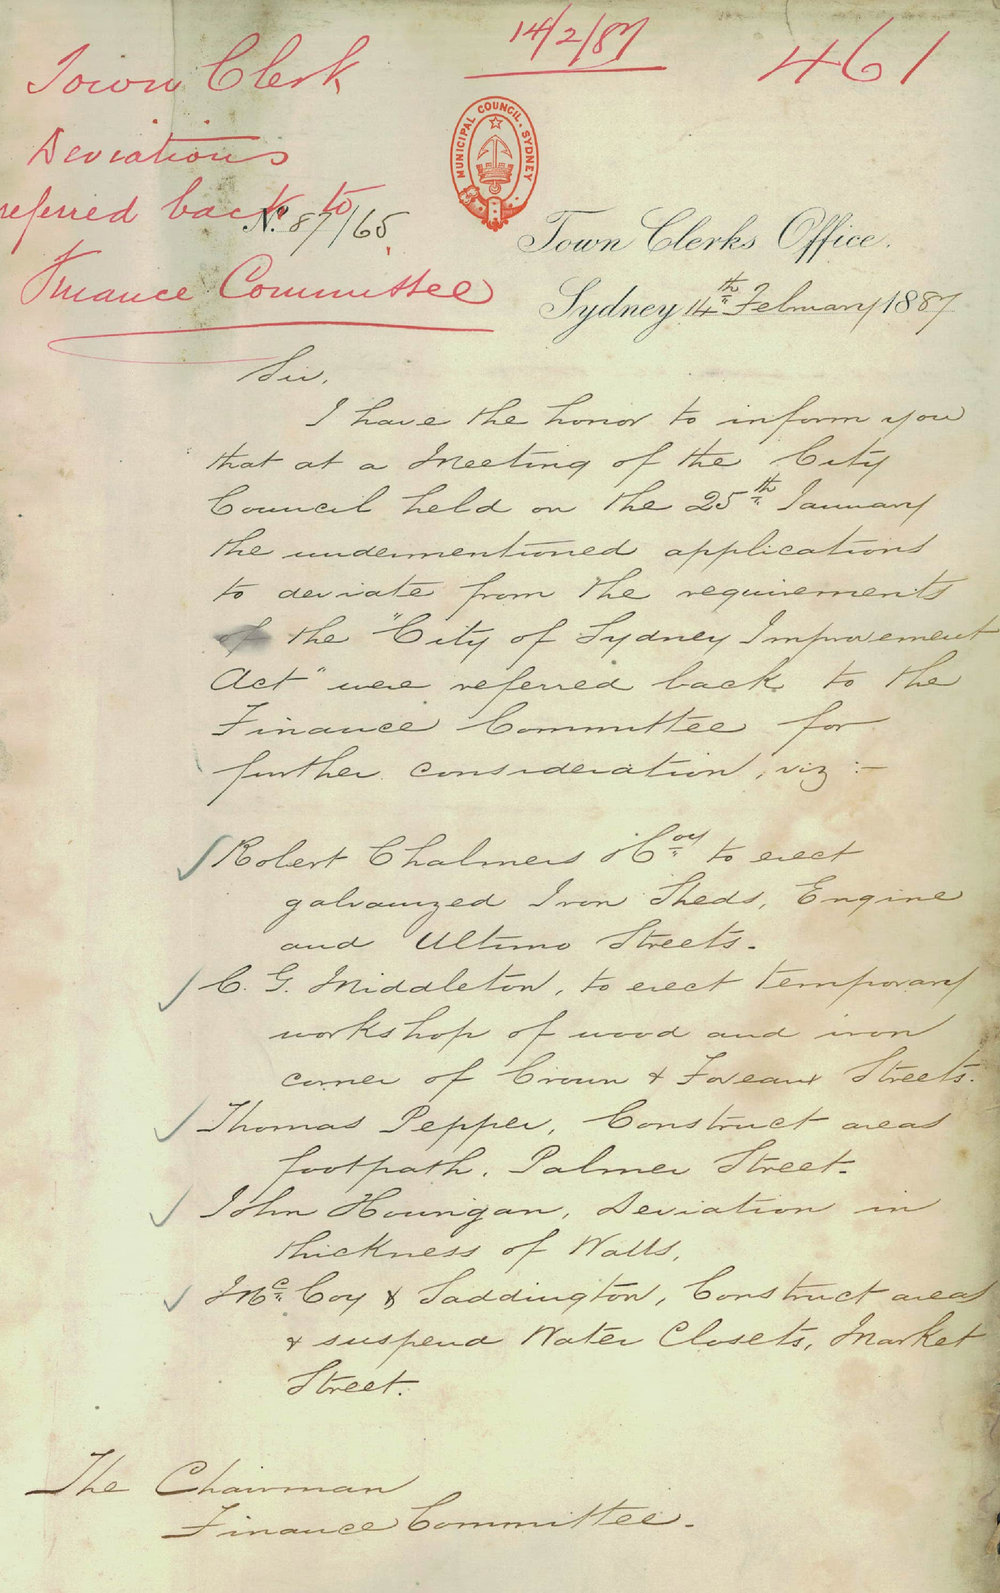 14/2/87
461
Town Clerk
Deviations
referred back to
Finance Committee
MUNICIPAL COUNCIL. SYDNEY
No. 87/65
Town Clerks Office.
Sydney 14th February 1887
Sir,
I have the honor to inform you
that at a Meeting of the City
Council held on the 25th January
the undermentioned applications
to deviate from the requirements
of the "City of Sydney Improvement
Act" were referred back to the
Finance Committee for
further consideration, viz:-
Robert Chalmers & Coy to erect
galvanized Iron Sheds, Engine
and Ultimo Streets.
C. G. Middleton, to erect temporary
workshop of wood and iron
corner of Crown & Foveaux Streets.
Thomas Pepper, Construct areas
footpath, Palmer Street.
John Hourigan, Deviation in
thickness of Walls,
McCoy & Saddington, Construct areas
& suspend Water Closets, Market
Street.
The Chairman
Finance Committee.